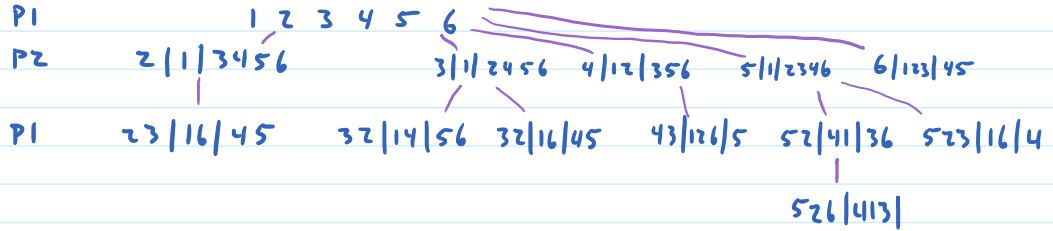 P1 1 2 3 4 5 6
P2 2|1|3456 3|1|2456 4|12|356 5|1|2346 6|123|45
P1 23|16|45 32|14|56 32|16|45 43|126|5 52|41|36 523|16|4
526|413|